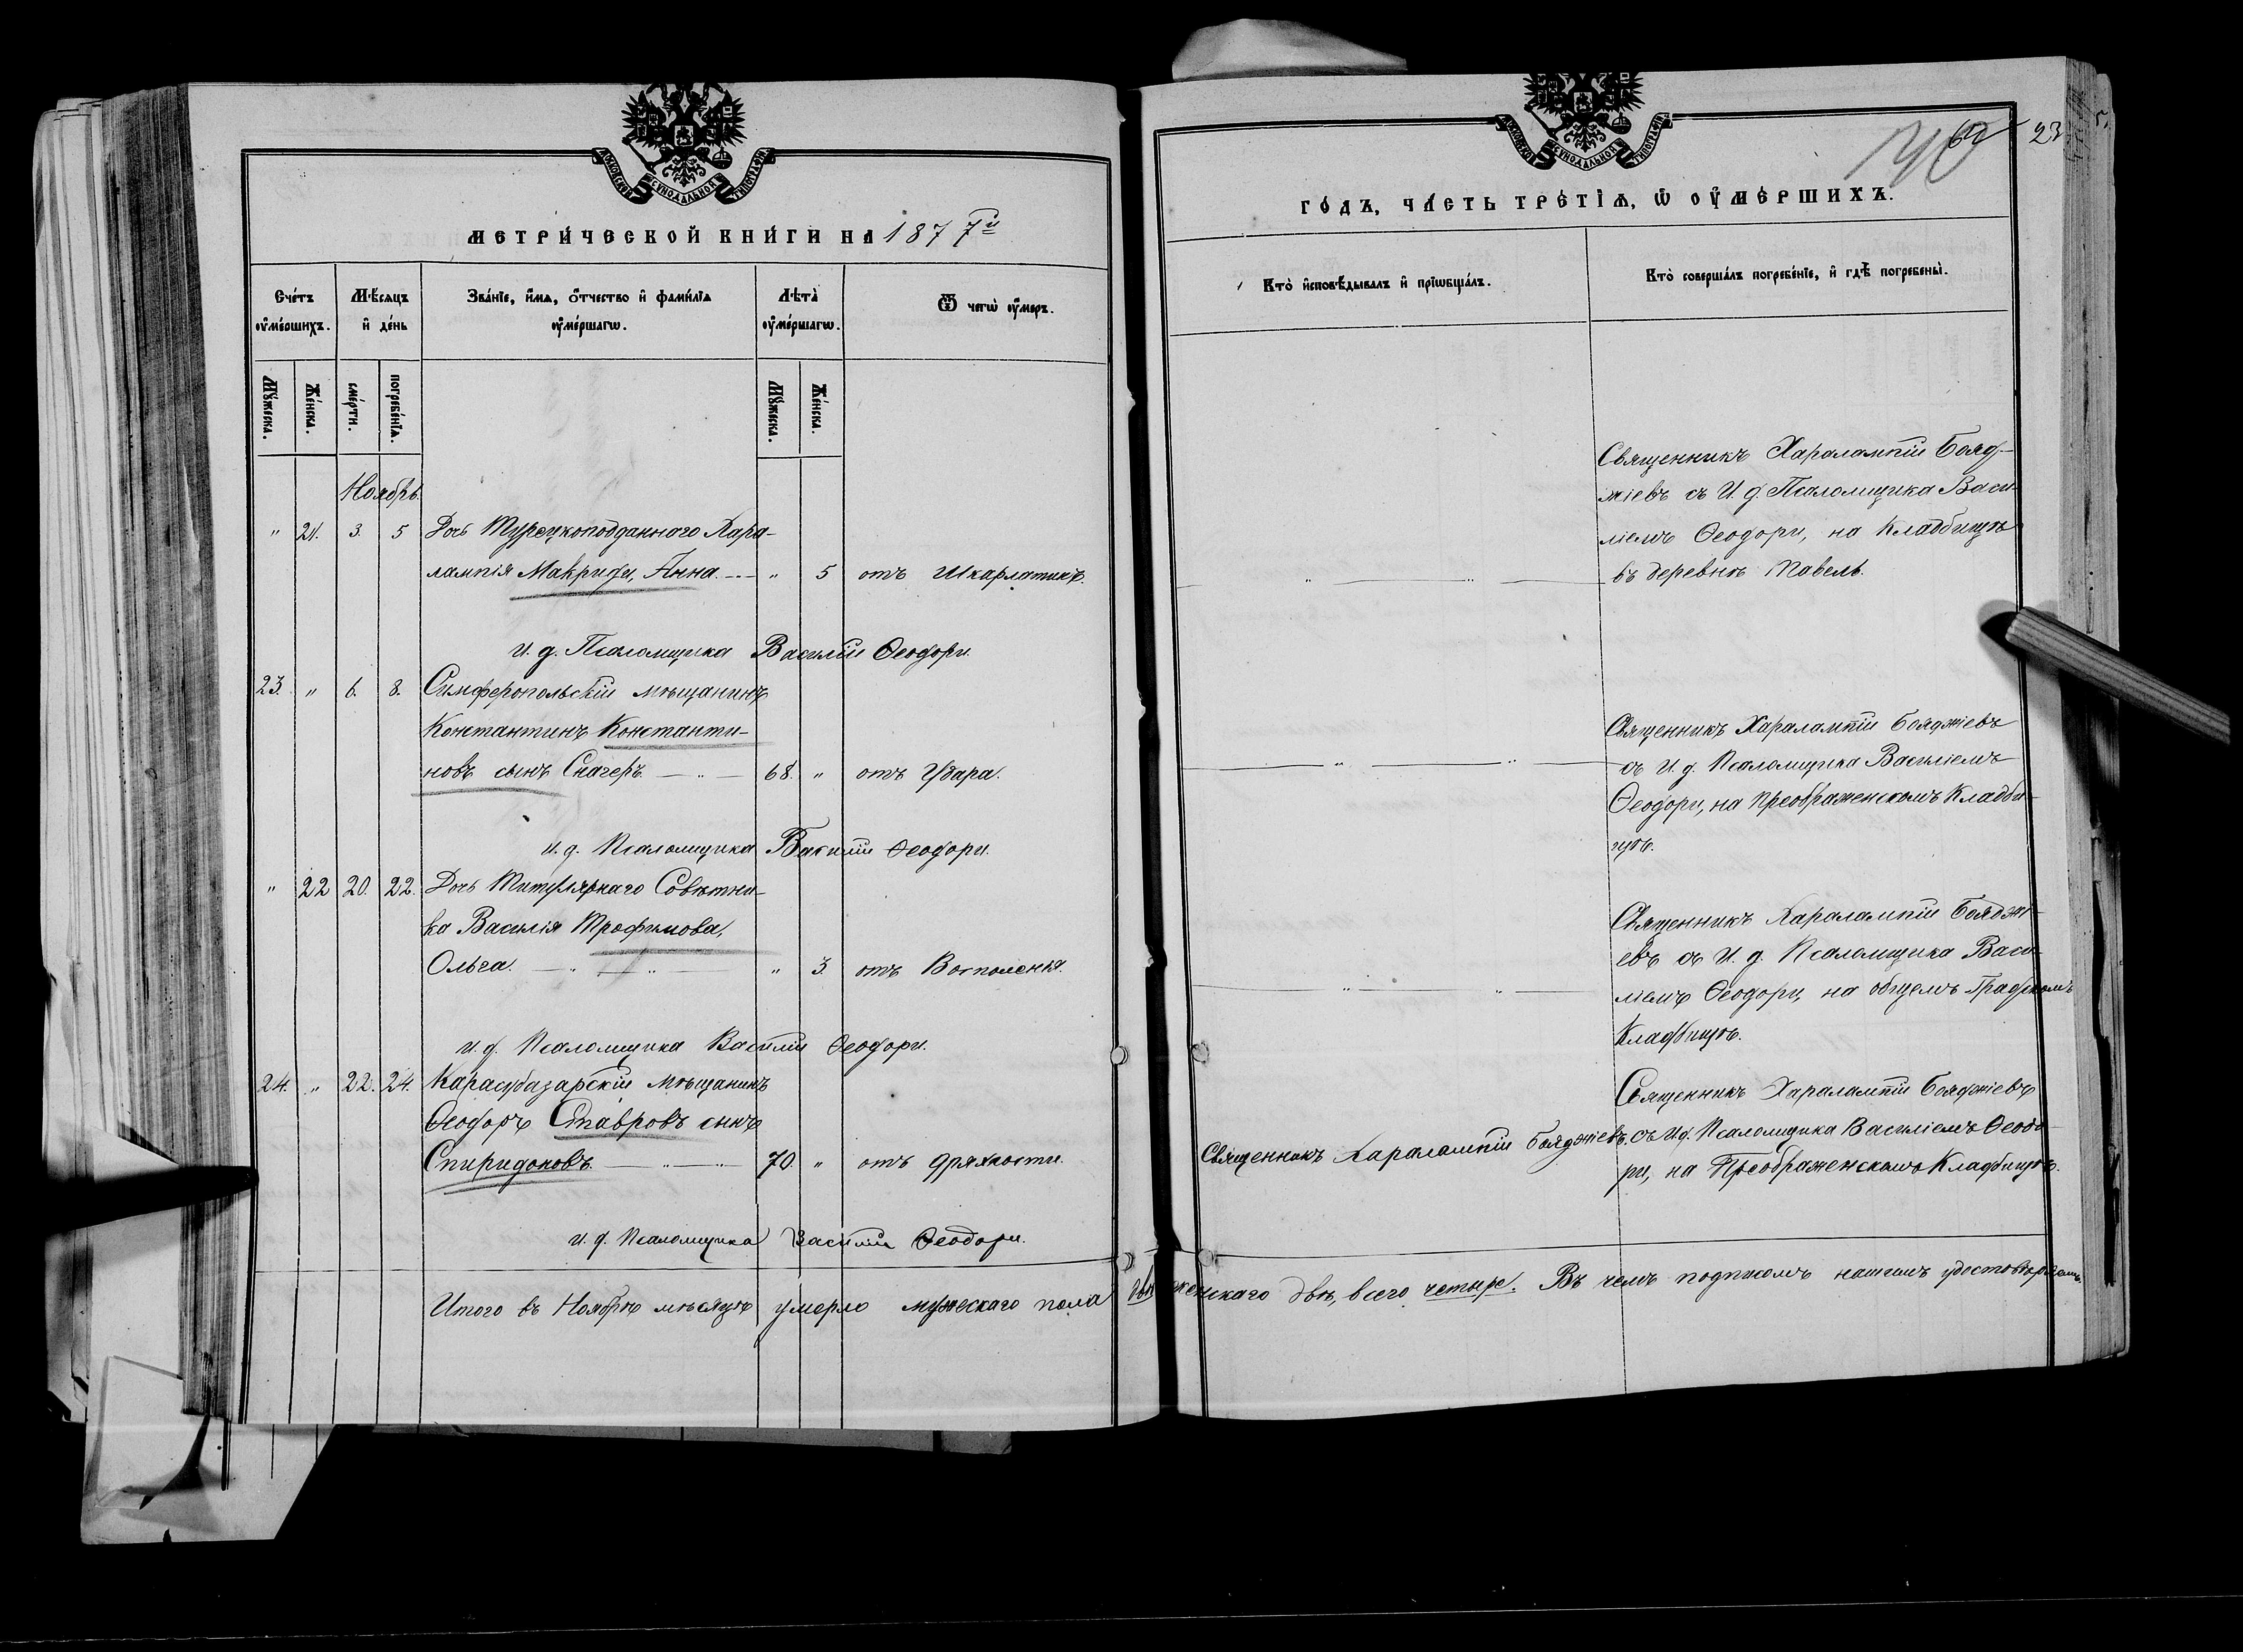 МОСКОВСКОЙ СѴНОДАЛЬНОЙ ТИПОГРАФІИ
МЕТРИ́ЧЕСКОЙ КНИ́ГИ НА 1877й
Сче́тъ ᲂу҆ме́ршихъ.
Мѣ́сяцъ и҆ де́нь
Зва́нїе, и҆́мѧ, ѻ҆́тчество и҆ фами́лїѧ ᲂу҆ме́ршагѡ.
Лѣта̀ ᲂу҆ме́ршагѡ.
Ѿ чегѡ̀ ᲂу҆́меръ.
Мꙋ́жеска.
Же́нска.
сме́рти.
погребе́нїѧ.
Мꙋ́жеска.
Же́нска.
Ноябрь.
" 21. 3. 5 Дочь Турецкоподданнаго Хара-
лампія Макриди, Анна. " 5 отъ Шкарлатины.
И. д. Псаломщика Василій Ѳеодори.
23. " 6. 8. Симферопольскій мѣщанинъ
Константинъ Константи-
новъ сынъ 68. " отъ Удара.
И. д. Псаломщика Василій Ѳеодори.
" 22 20. 22. Дочь Титулярнаго Совѣтни-
ка Василія Трофимова,
Ольга. " 3. отъ Воспаленія.
И. д. Псаломщика Василій Ѳеодори.
24. " 22. 24. Карасубазарскій мѣщанинъ
Ѳеодоръ Ставровъ сынъ
Спиридоновъ. 70. " отъ дряхлости.
И. д. Псаломщика Василій Ѳеодори.
Итого въ Ноябрѣ мѣсяцѣ умерло мужескаго пола два женскаго двѣ, всего четыре. Въ чемъ подписомъ нашимъ удостовѣряемъ
МОСКОВСКОЙ СѴНОДАЛЬНОЙ ТИПОГРАФІИ
62 23
ГО́ДЪ, ЧА́СТЬ ТРЕ́ТІѦ, Ѡ҆ ОУ҆МЕ́РШИХЪ.
Кто̀ и҆сповѣ́дывалъ и҆ прїѡбща́лъ.
Кто̀ соверша́лъ погребе́нїе, и҆ гдѣ̀ погребены̀.
Священникъ Харалампій Бояд-
жіевъ съ И. д. Псаломщика Васи-
ліемъ Ѳеодори, на Кладбищѣ
въ деревнѣ Мавель.
Священникъ Харалампій Бояджіевъ
съ И. д. Псаломщика Василіемъ
Ѳеодори, на Преображенскомъ Кладби-
щѣ.
Священникъ Харалампій Бояджі-
евъ съ И. д. Псаломщика Васи-
ліемъ Ѳеодори, на общемъ Градскомъ
Кладбищѣ.
Священникъ Харалампій Бояджіевъ.
Священникъ Харалампій Бояджіевъ
съ И. д. Псаломщика Василіемъ Ѳеодо-
ри, на Преображенскомъ Кладбищѣ.